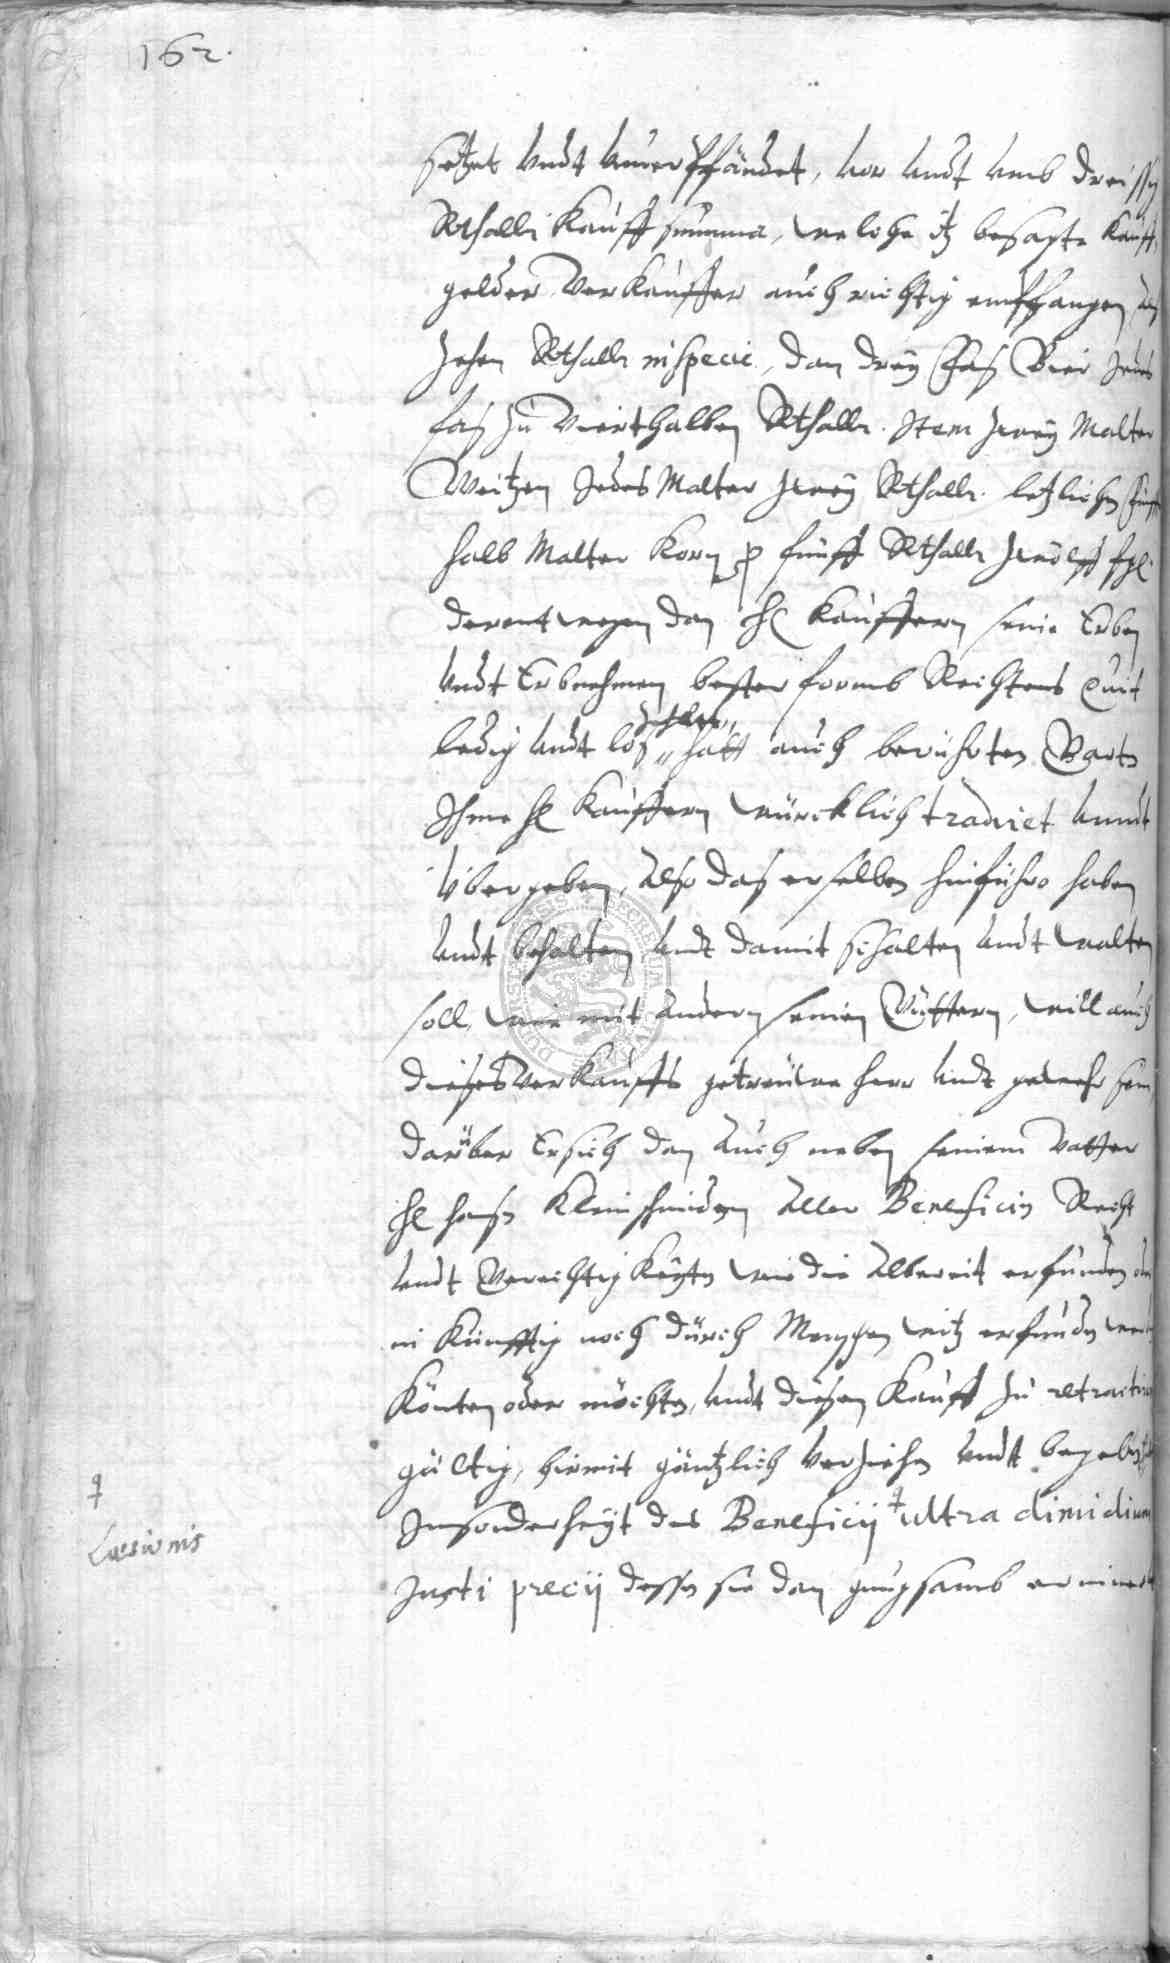 162.
setzet undt unverpfändet, vor undt umb dreissig
Rthallr Kauffsumma, welche itz besagte Kauff
gelder Verkauffer auch richtig empfangen, als
Zehen Rthallr in specie, dan drey Fas Bier Jedes
fas zu Vierthalben Rthallr. Item zwey Malter
Weitzen Jedes Malter zwey Rthallr. letzlichen
halb Malter Korn p fünff Rthallr zwölff sgl.
derentwegen dan H. Kauffern seine Erben
undt Erbnehmen bester formb Rechtens quit
ledig undt los zehlet,,
,, hatt auch berührten Garten
Ihme H. Kauffern würcklich tradiret unndt
Übergeben, Also das er selben hinführo haben
undt behalten undt damit schalten undt walten
soll, wie mit andern seinen Güttern, will auch
dieses Verkauffs getreuwe herr undt gewehr sein
darüber Er sich dan Auch neben seinem Vatter
H. Hansen Kleinschmiden Aller Beneficien Recht
undt Gerechtigkeyten wie die Albereit erfunden oder
in Künfftig noch dürch Menschen witz erfunden werden
Könten oder möchten, undt diesen Kauff zu retractiren
gültig, hirmit gäntzlich verziehen undt begeben
Insonderheyt des Beneficij ♀ ultra dimidium
♀ Laesionis
Justi precij dessen sie dan gnugsamb erinnert